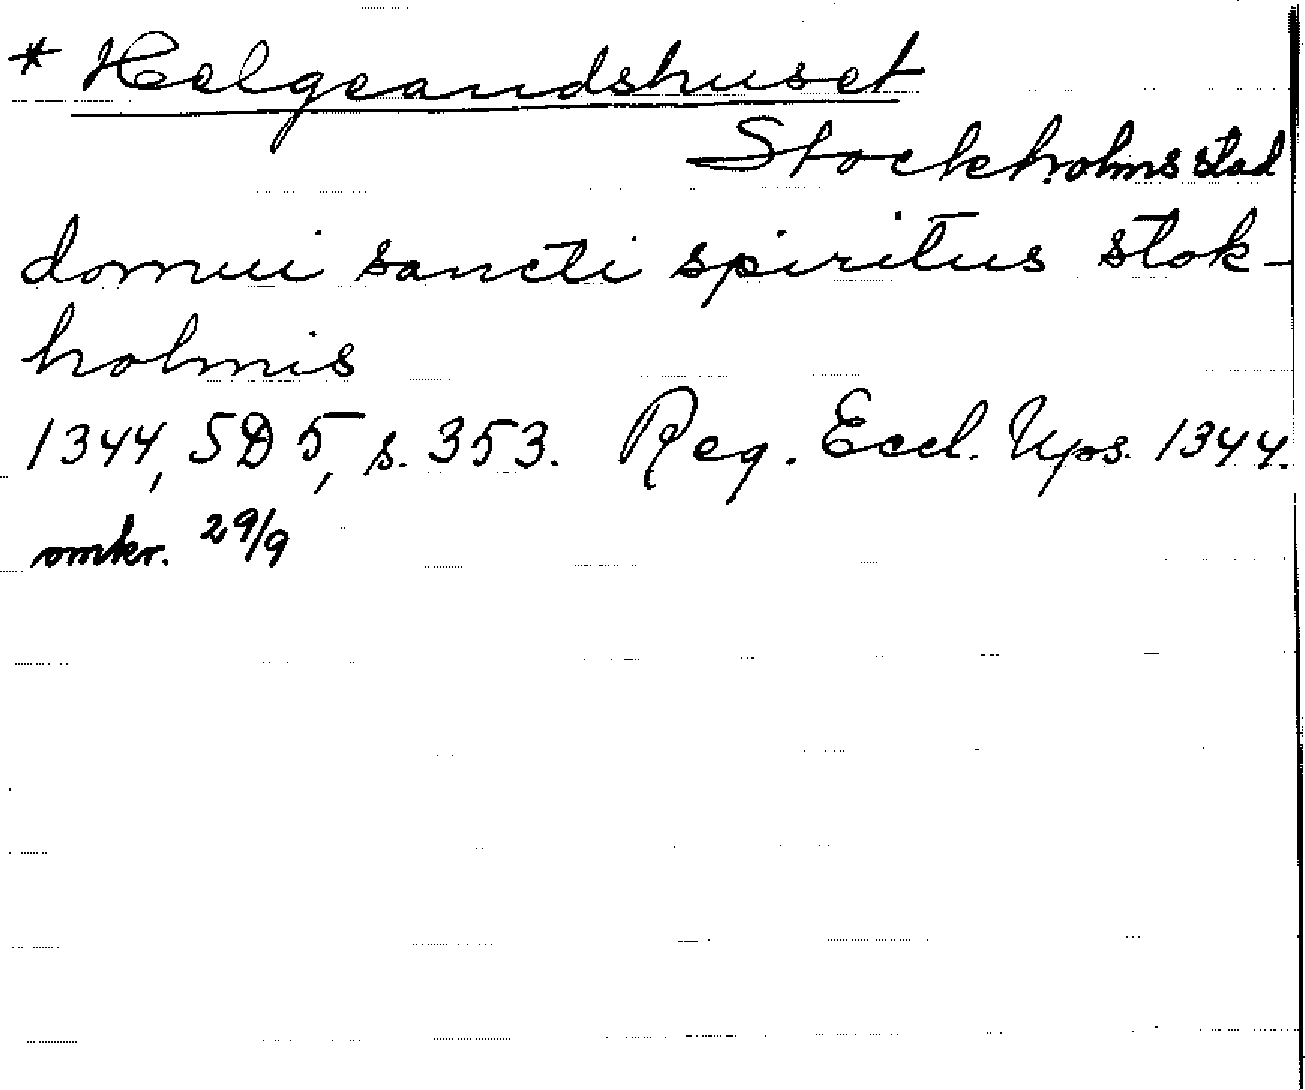 * Helgeandshuset
Stockholms stad
domui sancti spiritus stok-
holmis
1344, SD 5, s. 353. Reg. Eccl. Ups. 1344.
omkr. 29/9